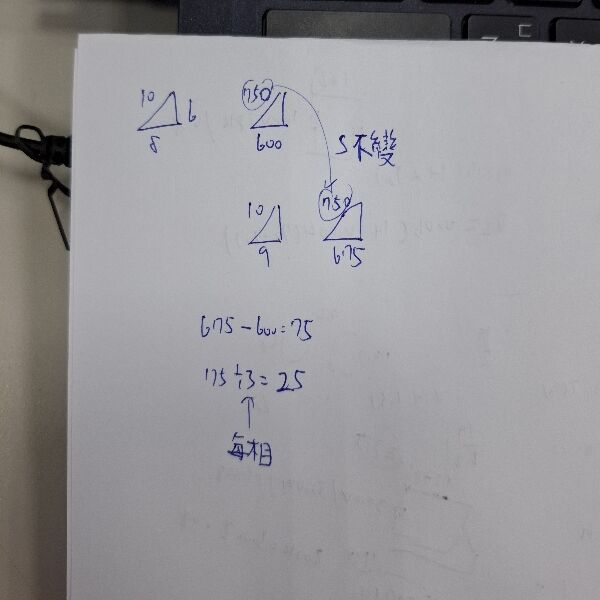 10 6 8
750 600
S不變
10 9
750 675
675-600=75
75÷3=25
↑
每相